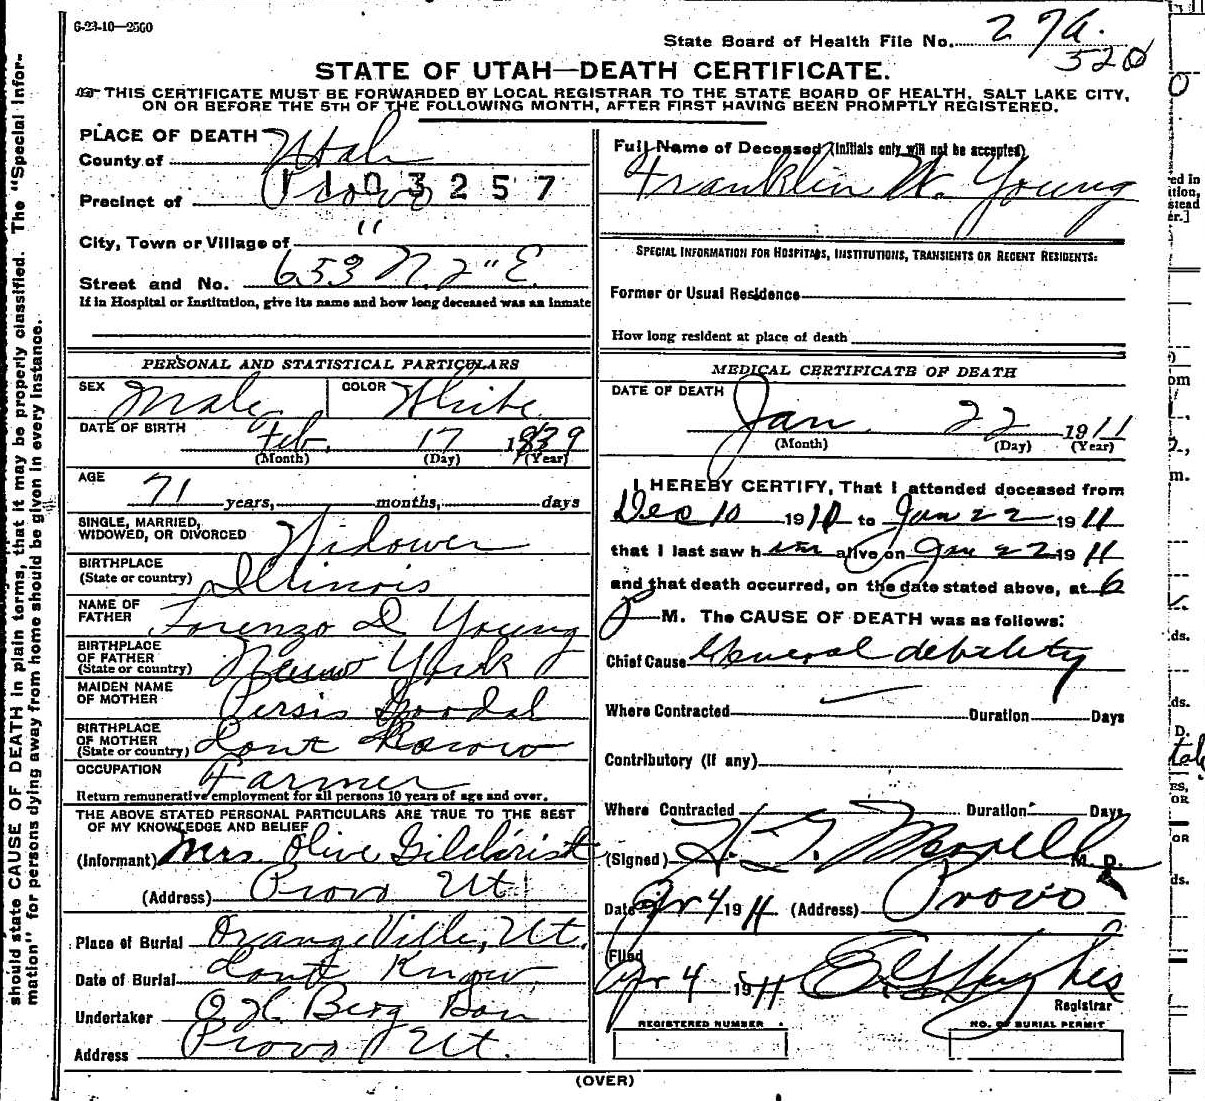 6-23-10—2500
State Board of Health File No. 27a.
320
STATE OF UTAH—DEATH CERTIFICATE.
THIS CERTIFICATE MUST BE FORWARDED BY LOCAL REGISTRAR TO THE STATE BOARD OF HEALTH, SALT LAKE CITY,
ON OR BEFORE THE 5TH OF THE FOLLOWING MONTH, AFTER FIRST HAVING BEEN PROMPTLY REGISTERED.
PLACE OF DEATH
County of Utah
1103257
Precinct of Provo
City, Town or Village of "
Street and No. 653 N. 2" E.
If in Hospital or Institution, give its name and how long deceased was an inmate
PERSONAL AND STATISTICAL PARTICULARS
SEX Male COLOR White
DATE OF BIRTH Feb. 17 1839
(Month) (Day) (Year)
AGE
71 years, months, days
SINGLE, MARRIED,
WIDOWED, OR DIVORCED Widower
BIRTHPLACE
(State or country) Illinois
NAME OF
FATHER Lorenzo D Young
BIRTHPLACE
OF FATHER
(State or country) New York
MAIDEN NAME
OF MOTHER Persis Goodal
BIRTHPLACE
OF MOTHER
(State or country) Dont Know
OCCUPATION Farmer
Return remunerative employment for all persons 10 years of age and over.
THE ABOVE STATED PERSONAL PARTICULARS ARE TRUE TO THE BEST
OF MY KNOWLEDGE AND BELIEF
(Informant) Mrs. Olive Gilchrist
(Address) Provo Ut
Place of Burial Orangeville, Ut.
Date of Burial Dont Know
Undertaker O H Berg Son
Address Provo Ut.
Full Name of Deceased (Initials only will not be accepted)
Franklin W. Young
SPECIAL INFORMATION FOR HOSPITALS, INSTITUTIONS, TRANSIENTS OR RECENT RESIDENTS:
Former or Usual Residence
How long resident at place of death
MEDICAL CERTIFICATE OF DEATH
DATE OF DEATH
Jan. 22 1911
(Month) (Day) (Year)
I HEREBY CERTIFY, That I attended deceased from
Dec 10 1910 to Jan 22 1911
that I last saw him alive on Jan 22 1911
and that death occurred, on the date stated above, at 6
P M. The CAUSE OF DEATH was as follows:
Chief Cause General debility
Where Contracted Duration Days
Contributory (if any)
Where Contracted Duration Days
(Signed) M. D.
Date 4 1911 (Address) Provo
Filed
4 1911 Hughes
Registrar
REGISTERED NUMBER NO. OF BURIAL PERMIT
(OVER)
should state CAUSE OF DEATH in plain terms, that it may be properly classified. The "Special Infor-
mation" for persons dying away from home should be given in every instance.